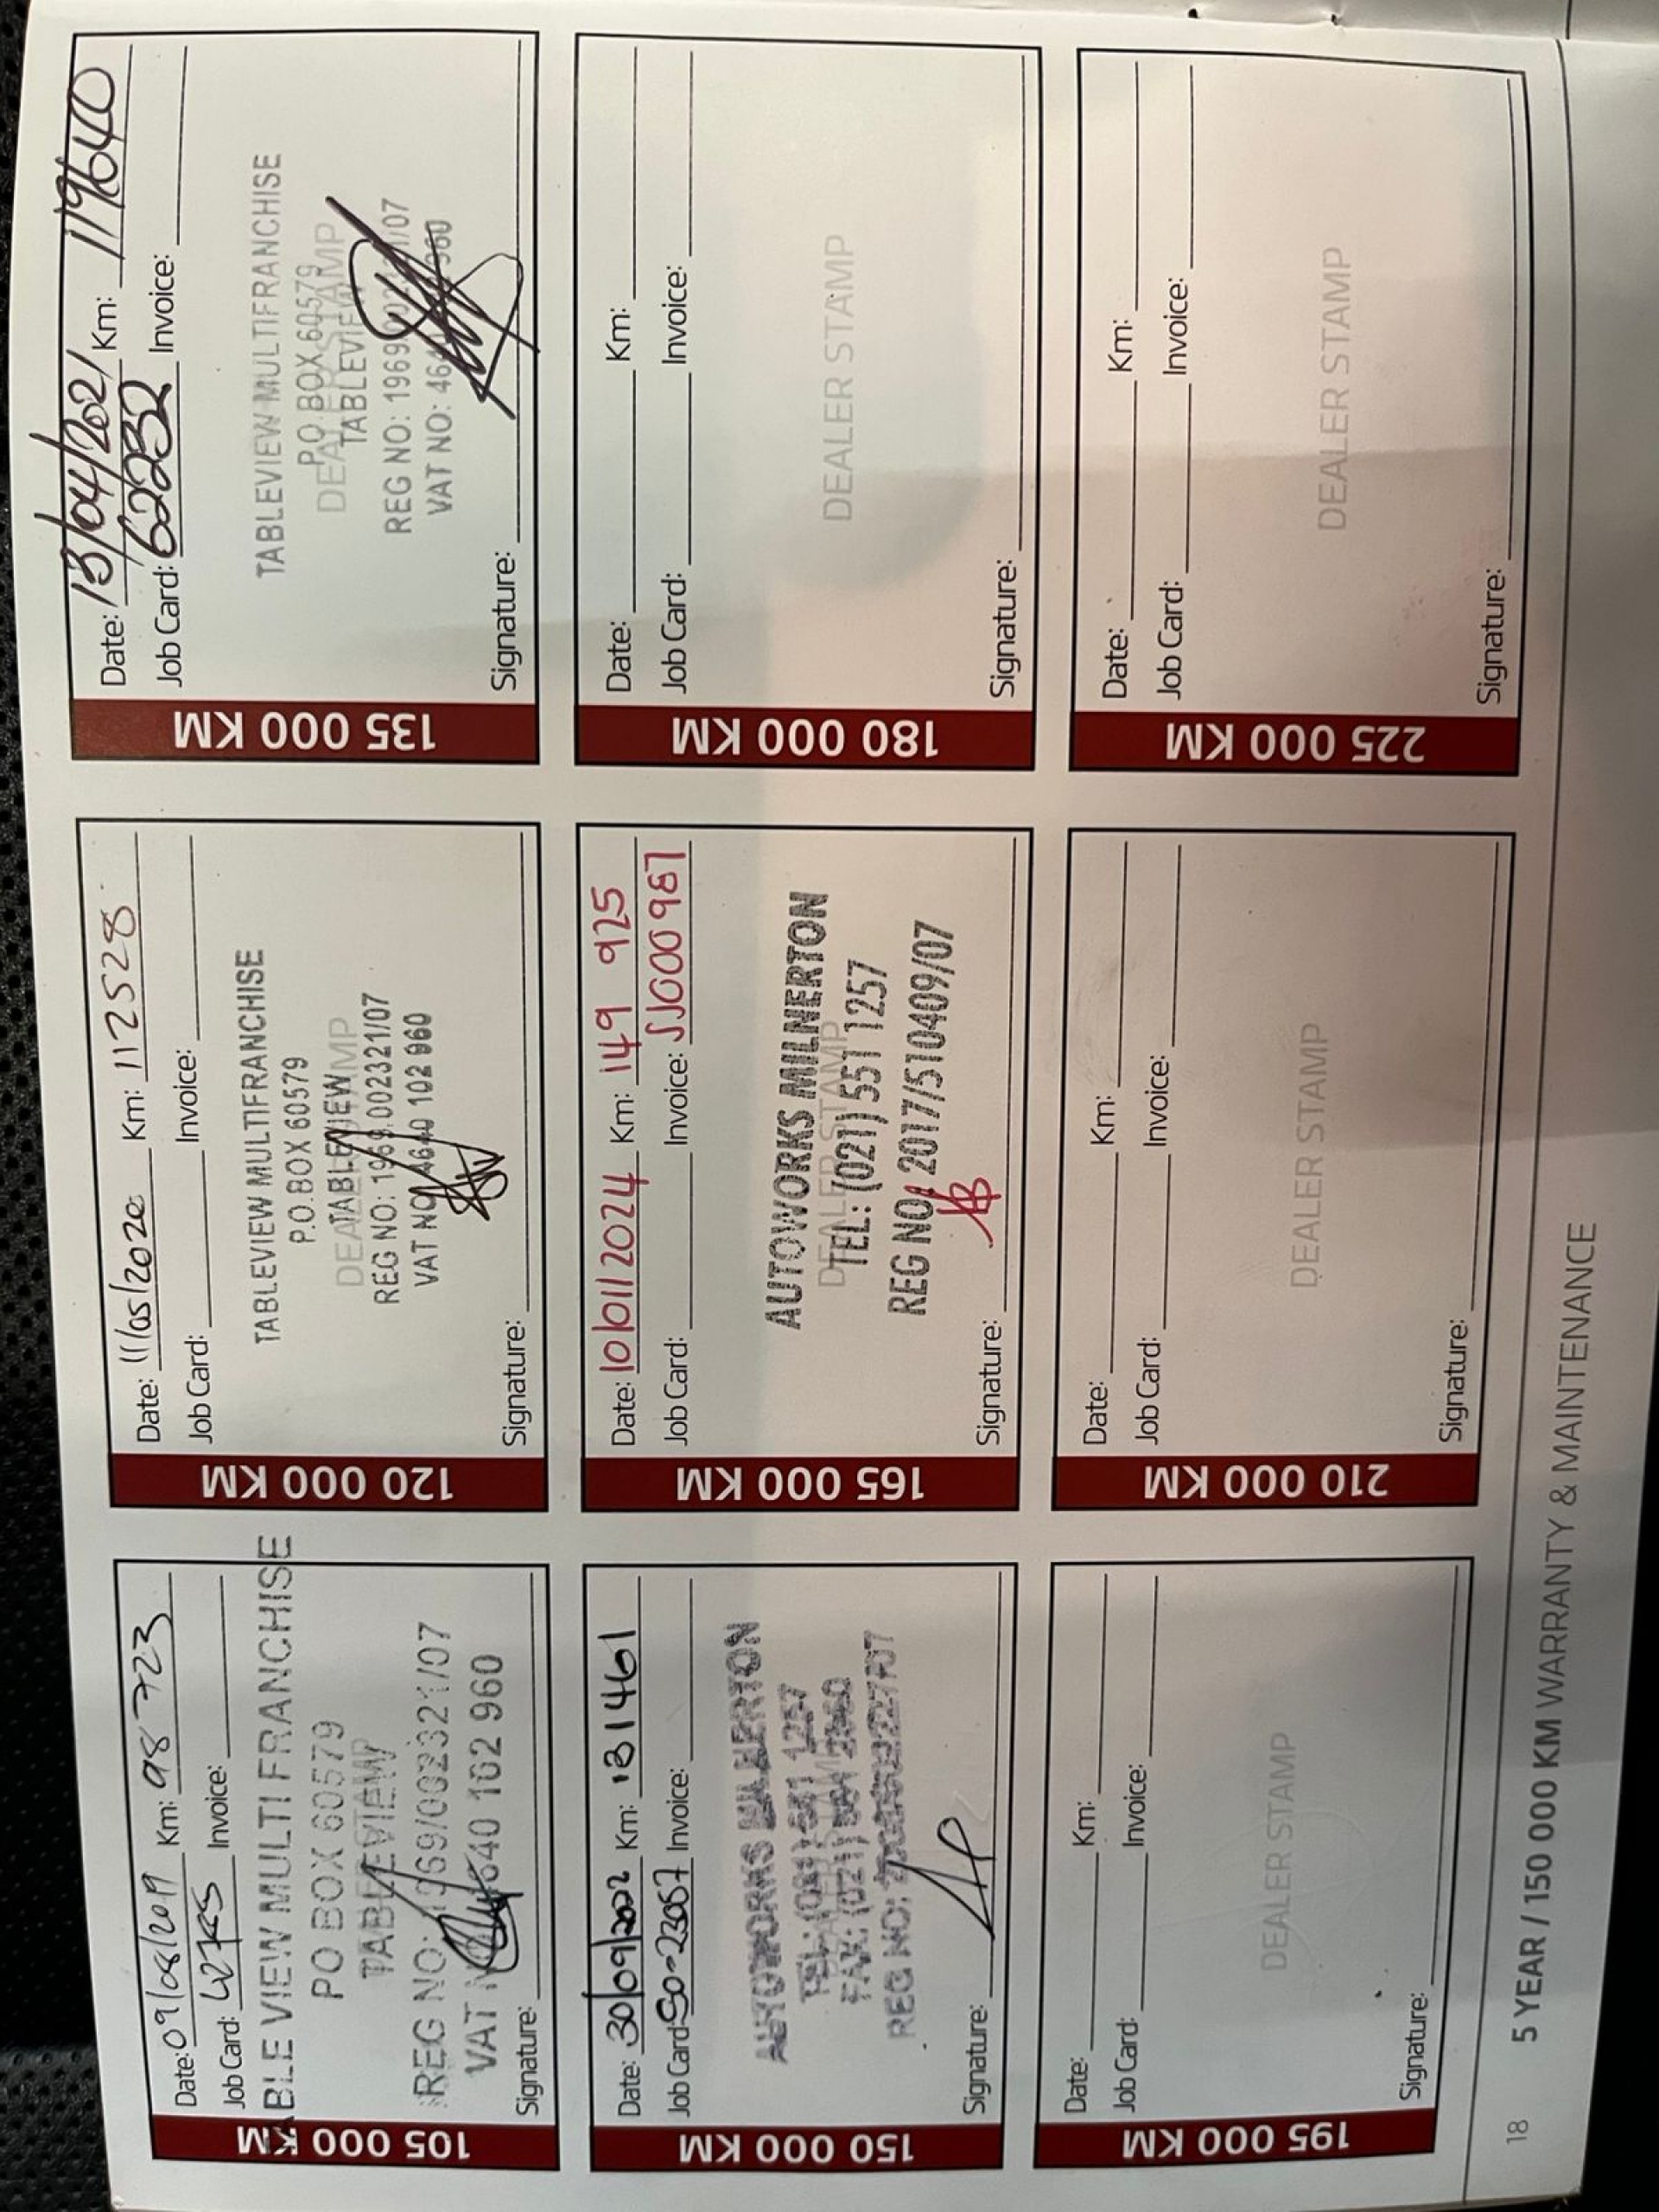 105 000 KM
Date: 09/08/2019 Km: 98 723
Job Card: 42785 Invoice:
TABLE VIEW MULTI FRANCHISE
PO BOX 60579
TABLEVIEW
REG NO: 1969/002321/07
VAT NO 4640 102 960
Signature:
120 000 KM
Date: 11/05/2020 Km: 112528
Job Card: Invoice:
TABLEVIEW MULTIFRANCHISE
P.O.BOX 60579
DEALER STAMP
TABLEVIEW
REG NO: 1969/002321/07
VAT NO: 4640 102 960
Signature:
135 000 KM
Date: 13/04/2021 Km: 119640
Job Card: 62232 Invoice:
TABLEVIEW MULTIFRANCHISE
P.O.BOX 60579
DEALER STAMP
TABLEVIEW
REG NO: 1969/002321/07
VAT NO: 4640 102 960
Signature:
150 000 KM
Date: 30/09/2022 Km: 131461
Job Card: SO-23067 Invoice:
AUTOWORKS MILNERTON
TEL: (021) 551 1257
FAX: (021)
REG NO:
Signature:
165 000 KM
Date: 10/01/2024 Km: 149 925
Job Card: Invoice: SJ000987
AUTOWORKS MILNERTON
DEALER STAMP
TEL: (021) 551 1257
REG NO: 2017/510409/07
Signature:
180 000 KM
Date: Km:
Job Card: Invoice:
DEALER STAMP
Signature:
195 000 KM
Date: Km:
Job Card: Invoice:
DEALER STAMP
Signature:
210 000 KM
Date: Km:
Job Card: Invoice:
DEALER STAMP
Signature:
225 000 KM
Date: Km:
Job Card: Invoice:
DEALER STAMP
Signature:
18 5 YEAR / 150 000 KM WARRANTY & MAINTENANCE